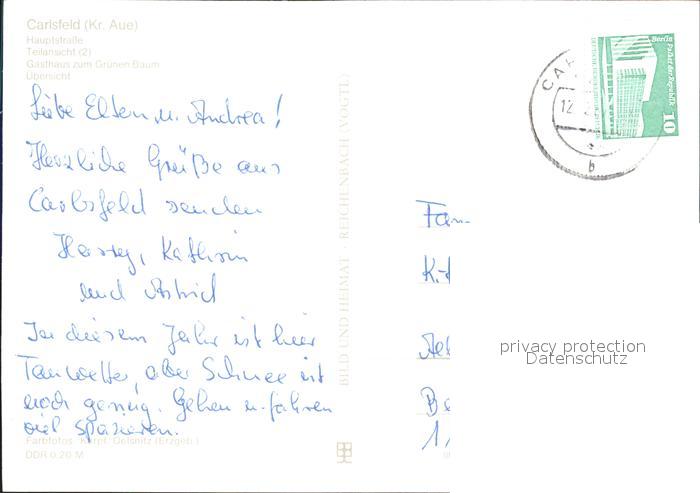 Carlsfeld (Kr. Aue)
Hauptstraße
Teilansicht (2)
Gasthaus zum Grünen Baum
Übersicht
Liebe Eltern, u. Andrea!
Herzliche Grüße aus
Carlsfeld senden
Harry, Kathrin
und Astrid
In diesem Jahr ist hier
Tauwetter, aber Schnee ist
noch genug. Gehen u. fahren
viel spazieren.
Farbfotos: Karpf, Oelsnitz (Erzgeb.)
DDR 0,20 M
BILD UND HEIMAT · REICHENBACH (VOGTL)
Berlin
Palast der Republik
10
12
b
Fam.
privacy protection
Datenschutz